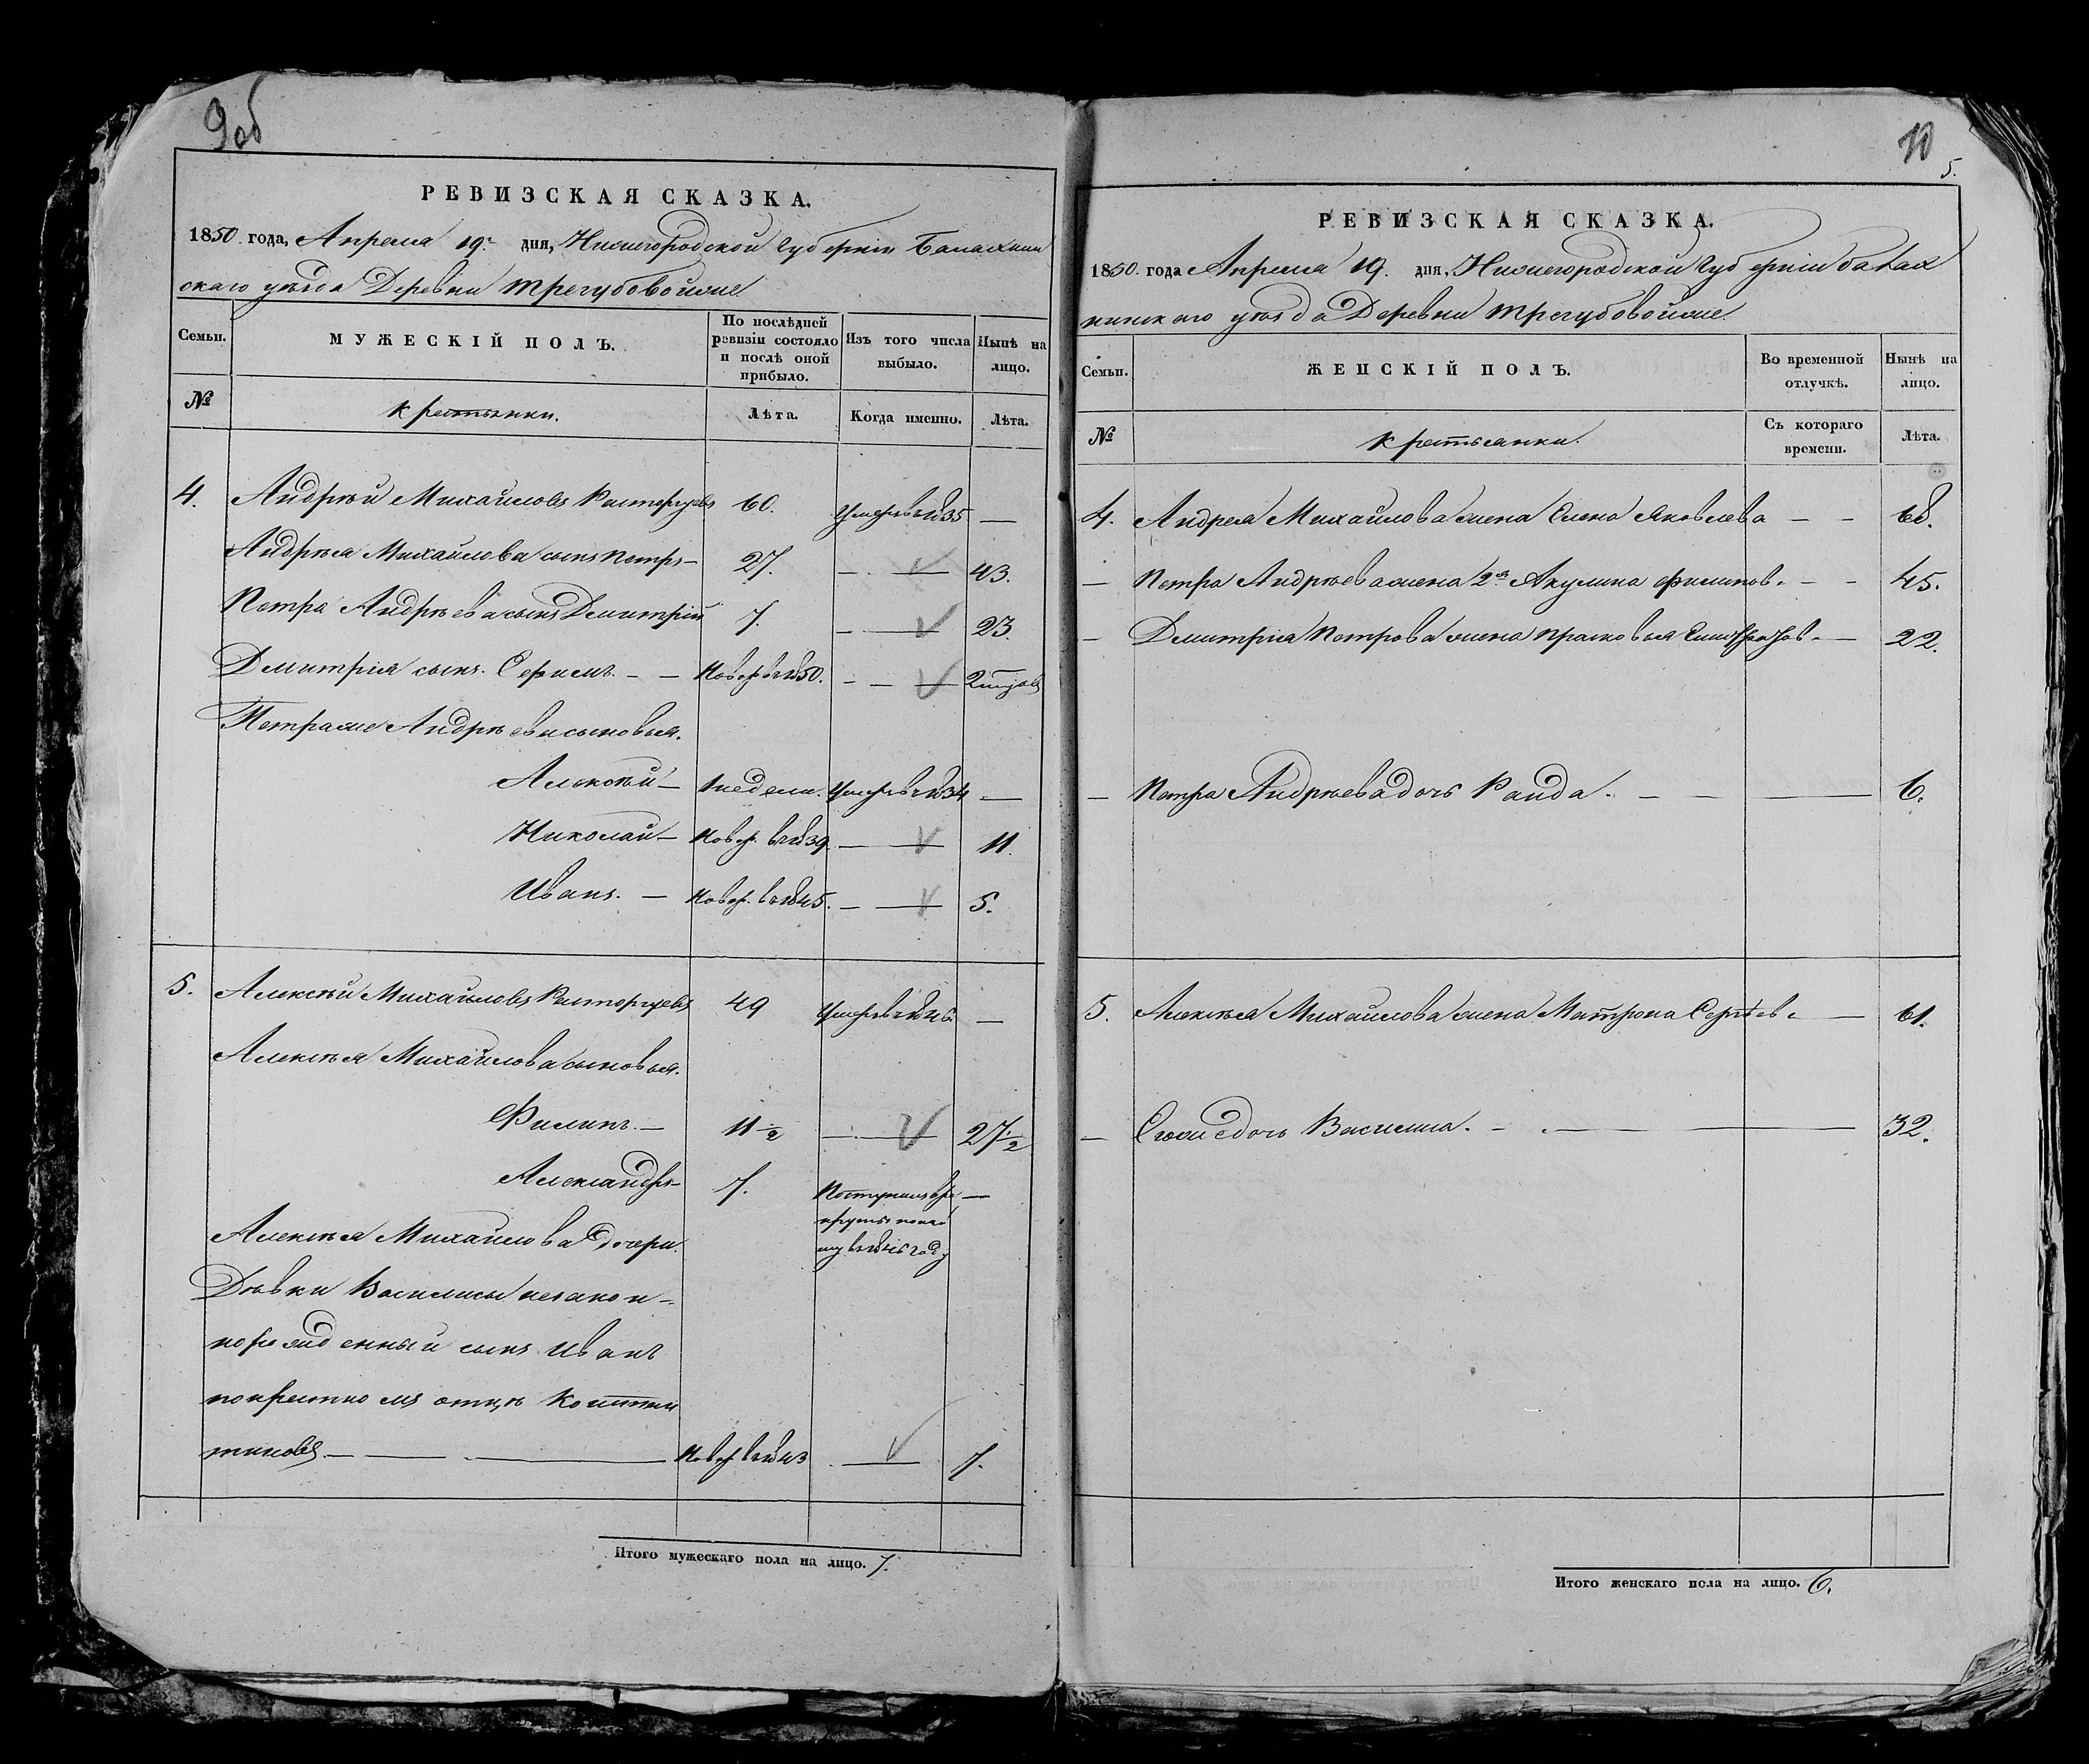 9об
РЕВИЗСКАЯ СКАЗКА.
1850 года, Апреля 19го дня, Нижегородской губернiи Балахнин
скаго уезда Деревни Трегубовойже
Семьи.
МУЖЕСКIЙ ПОЛЪ.
По послѣдней ревизiи состояло и послѣ оной прибыло.
Изъ того числа выбыло.
Нынѣ на лицо.
№
Крестьяни.
Лѣта.
Когда именно.
Лѣта.
4. Андрѣй Михайловъ Расторгуевъ 60. Умеръ въ 1835 —
Андрѣя Михайлова сынъ Петръ — 27. — 43.
Петра Андрѣева сынъ Дмитрiй 7. — 23.
Дмитрiя сынъ Ефимъ. — — Новор. въ 1850. — —
Петраже Андрѣева сыновья.
Алексѣй — 1 недели. Умеръ въ 1834 —
Николай — Новор. въ 1839 — 11.
Иванъ. — Новор. въ 1845. — 5.
5. Алексѣй Михайловъ Расторгуевъ 49 Умеръ въ 1846 —
Алексѣя Михайлова сыновья.
Филипъ. — 11 1/2 — 27 1/2
Александръ 7. Поступилъ въ ре —
круты
въ 1846 году
Алексѣя Михайлова дочери
Дѣвки Василисы незакон-
норожденный сынъ Иванъ
покрестномъ отцѣ Констан
тиновъ. — — Новор въ 1843 — 7.
Итого мужескаго пола на лицо. 7.
10
5.
РЕВИЗСКАЯ СКАЗКА.
1850. года Апреля 19. дня, Нижегородской губернiи балах
нинскаго уѣзда Деревни Трегубовойже.
Семьи.
ЖЕНСКIЙ ПОЛЪ.
Во временной отлучкѣ.
Нынѣ на лицо.
№
Крестьянки.
Съ котораго времени.
Лѣта.
4. Андрея Михайлова жена Елена Яковлева — — 68.
— Петра Андрѣева жена 2я Акулина Филипов. — — 45.
— Дмитрiя Петрова жена Прасковья — 22.
— Петра Андрѣева дочь Раида. — — — 6.
5. Алексѣя Михайлова жена Матрона Сергѣев. — 61.
— Егоже дочь Василиса. — — — 32.
Итого женскаго пола на лицо. 6.